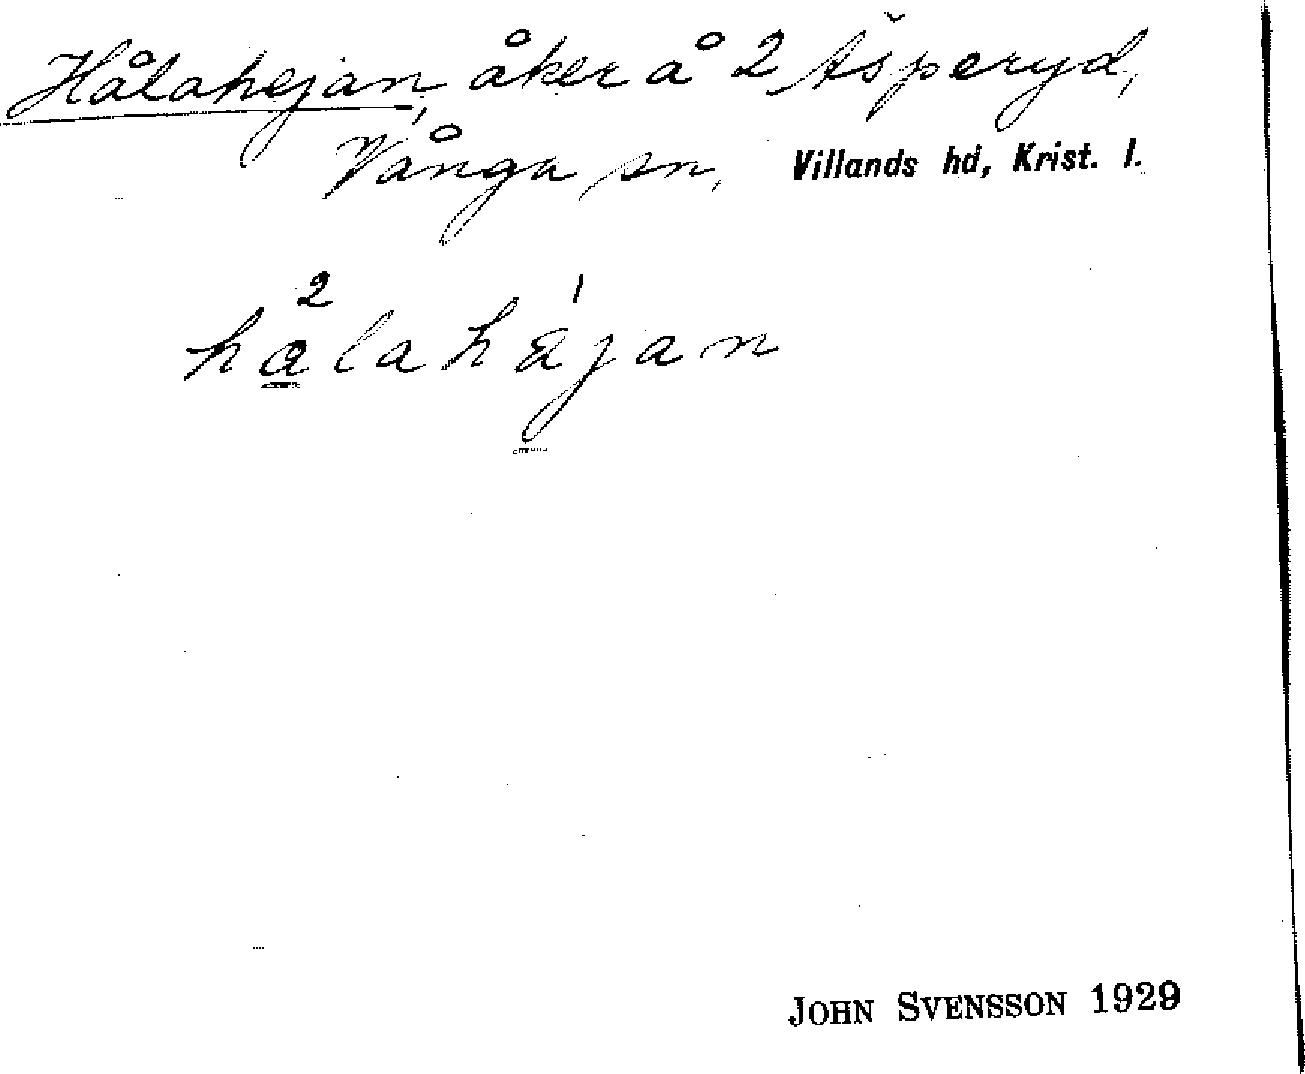 Hålahejan, åker å 2 Ašperyd,
Vånga sn, Villands hd, Krist. l.
2 1
hålahäjan
JOHN SVENSSON 1929